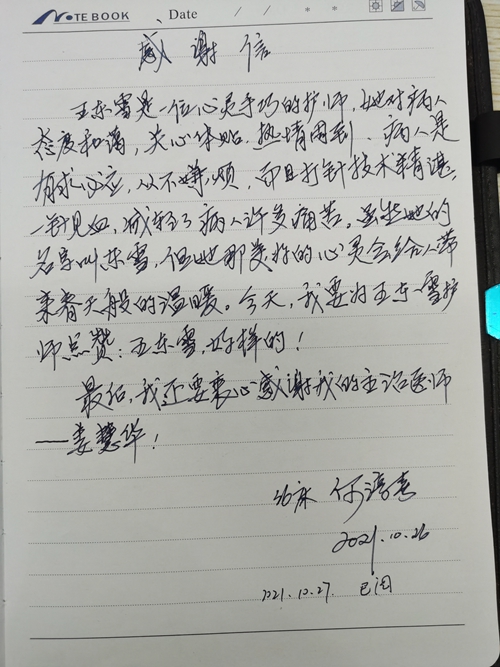 NOTEBOOK Date / / * *
感谢信
王东雪是一位心灵手巧的护师,她对病人
态度和蔼,关心体贴,热情周到,病人是
有求必应,从不嫌烦,而且打针技术精湛,
一针见血,减轻了病人许多痛苦。虽然她的
名字叫东雪,但她那美好的心灵会给人带
来春天般的温暖。今天,我要为王东雪护
师点赞:王东雪,好样的!
最后,我还要衷心感谢我的主治医师
——姜慧华!
36床 何淳喜
2021.10.26
2021.10.27. 已阅